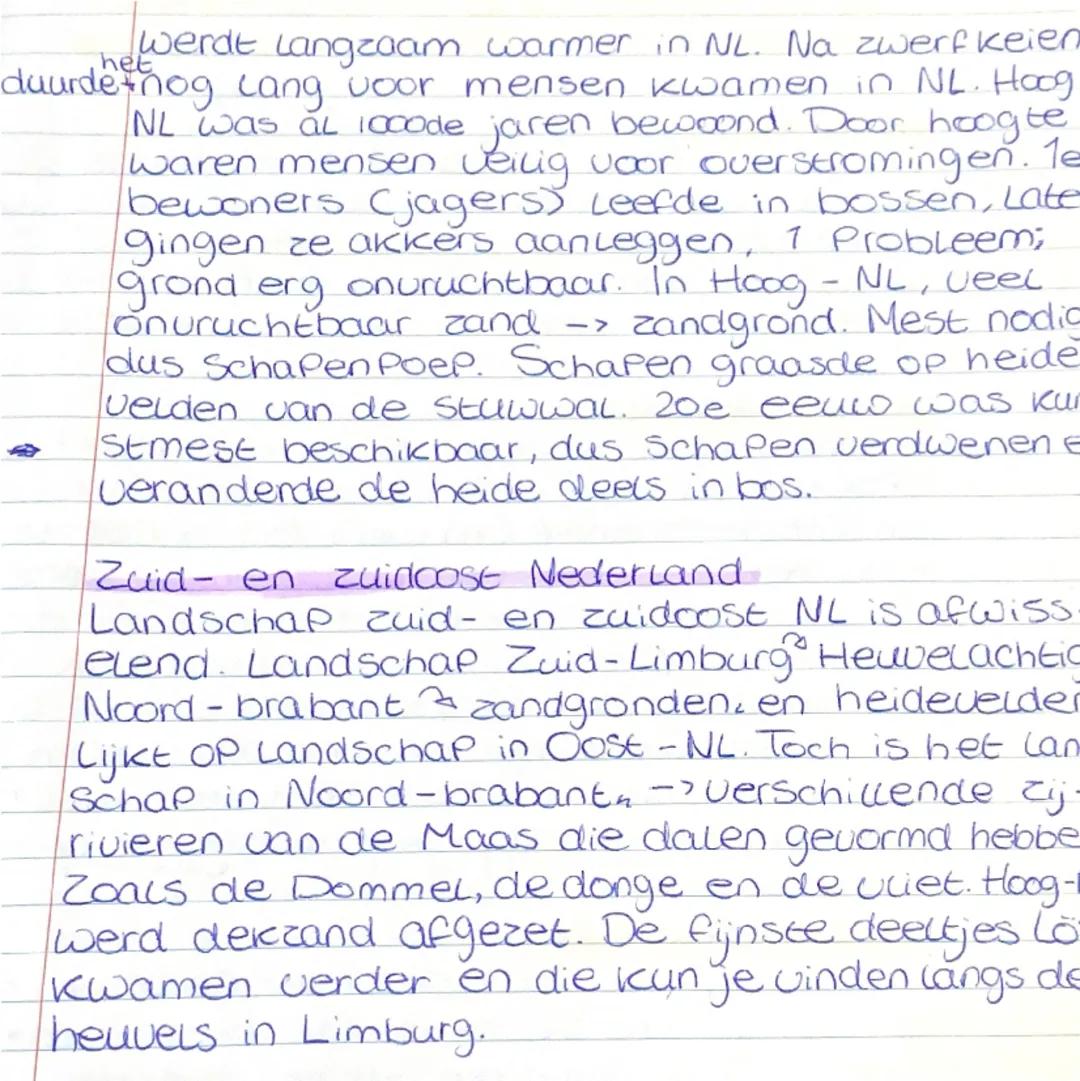 werdt langzaam warmer in NL. Na zwerfkeien
duurde het nog lang voor mensen kwamen in NL. Hoog
NL was al 1000de jaren bewoond. Door hoogte
waren mensen veilig voor overstromingen. 1e
bewoners (jagers) leefde in bossen, Late
gingen ze akkers aanleggen, 1 Probleem;
grond erg onvruchtbaar. In Hoog - NL, veel
onvruchtbaar zand -> zandgrond. Mest nodig
dus schapenpoep. Schapen graasde op heide
velden van de stuwwal. 20e eeuw was kun
stmest beschikbaar, dus schapen verdwenen e
veranderde de heide deels in bos.
Zuid- en zuidoost Nederland
Landschap zuid- en zuidoost NL is afwiss-
elend. Landschap Zuid-Limburg Heuvelachtig
Noord-brabant zandgronden en heidevelden
Lijkt op landschap in Oost-NL. Toch is het lan
schap in Noord-brabant -> verschillende zij-
rivieren van de Maas die dalen gevormd hebbe
Zoals de Dommel, de donge en de vliet. Hoog-
werd dekzand afgezet. De fijnste deeltjes Lö
kwamen verder en die kun je vinden langs de
heuvels in Limburg.